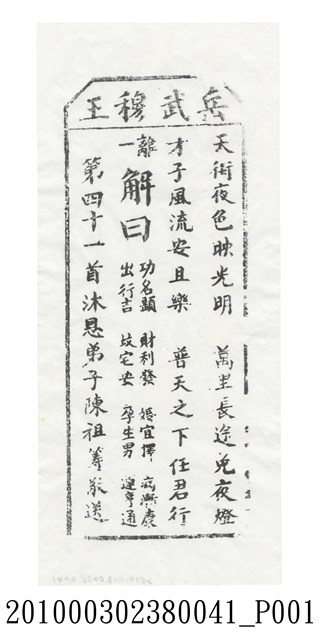 岳武穆王
天街夜色映光明 萬里長途免夜燈
才子風流安且樂 普天之下任君行
離一
解曰
功名顯 財利發 婚宜擇 病漸康
出行吉 蚊宅安 孕生男 運亨通
第四十一首沐恩弟子陳祖籌敬送
201000302380041_P001